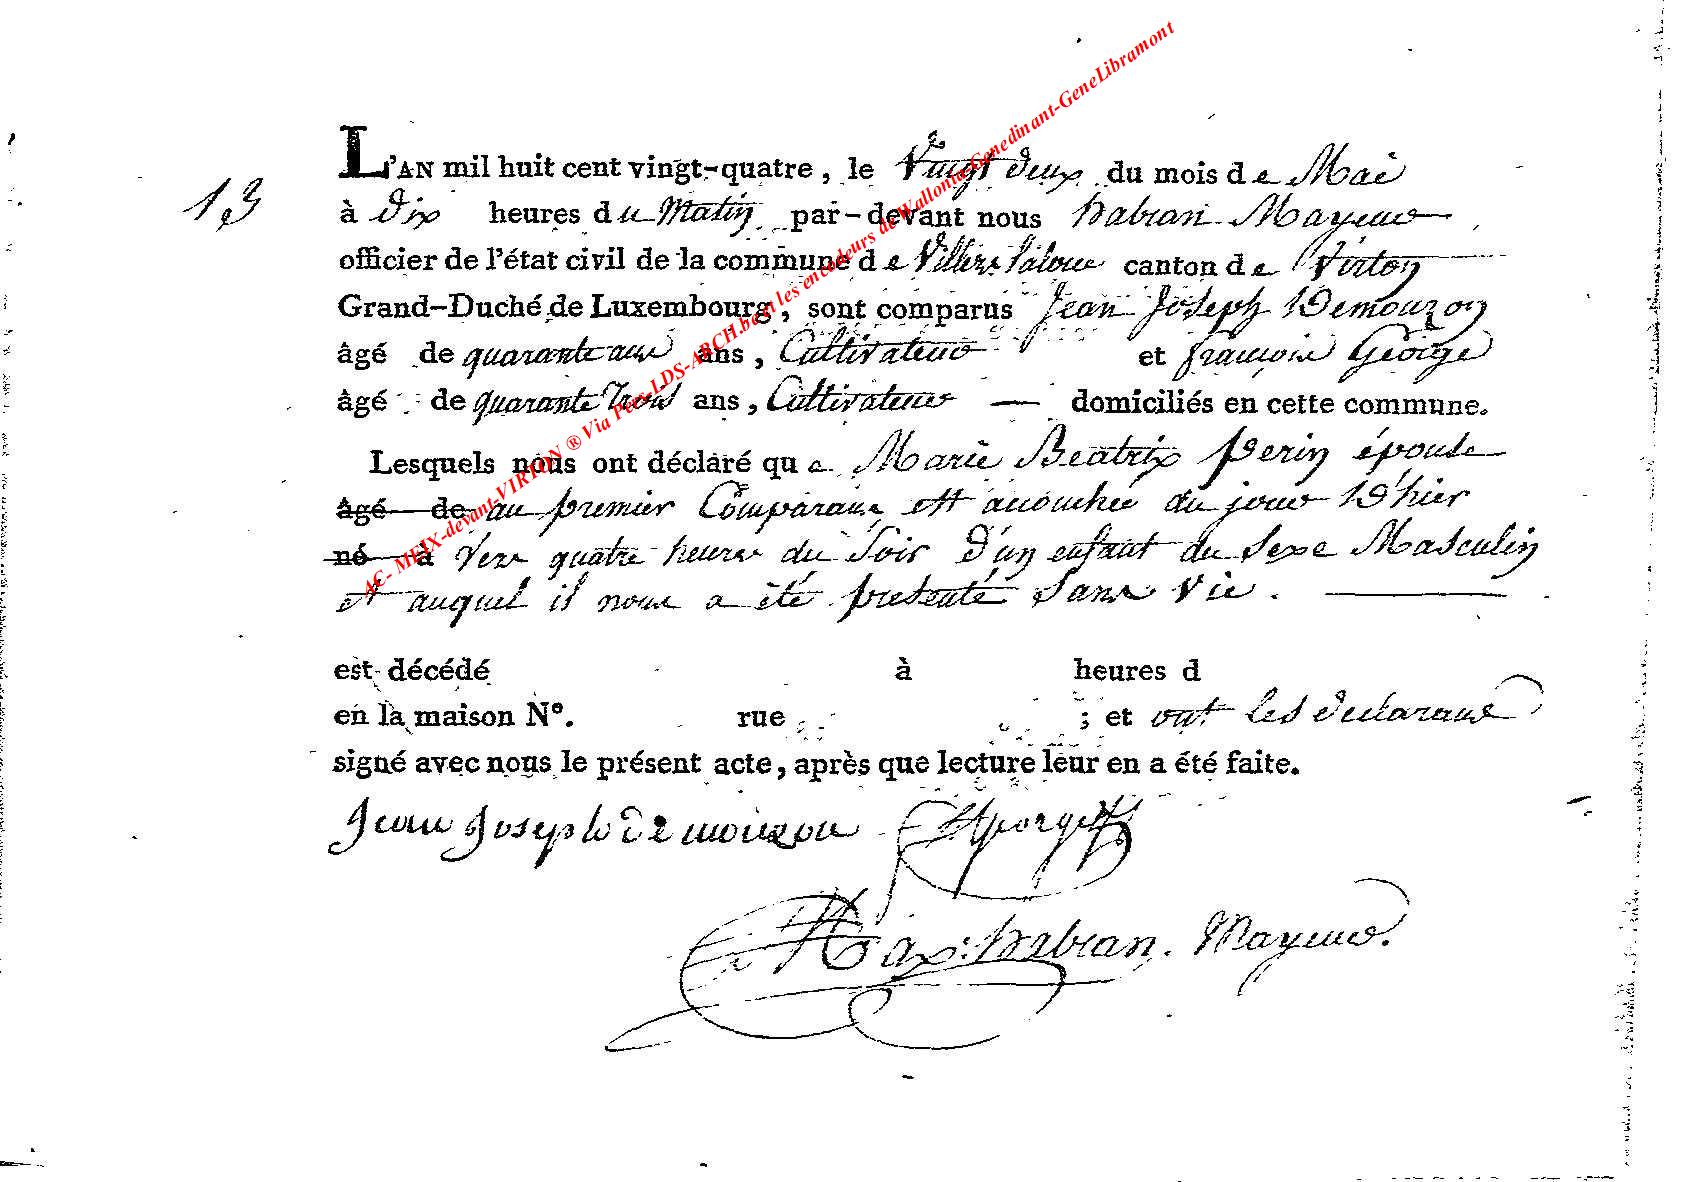 13
L'AN mil huit cent vingt-quatre, le Vingt deux du mois de Mai
à dix heures du Matin par-devant nous habran Mayeur
officier de l'état civil de la commune de Villers Laloue canton de Virton
Grand-Duché de Luxembourg, sont comparus Jean Joseph Demouzon
âgé de quarante ans, Cultivateur et françois George
âgé de quarante trois ans, Cultivateur — domiciliés en cette commune.
Lesquels nous ont déclaré que Marie Beatrix perin épouse
âgé de au premier Comparant est acouchée du jour D'hier
né à Vers quatre heures du Soir D'un enfant du Sexe Masculin
et auquel il nous a été presenté Sans Vie.
est décédé à heures d
en la maison N°. rue ; et ont les declarans
signé avec nous le présent acte, après que lecture leur en a été faite.
Jean Joseph demouzon george
habran. Mayeur.
AC- MEIX-devant-VIRTON ® Via Pers-LDS-ARCH.be et les encodeurs de Wallonia-Genedinant-GeneLibramont